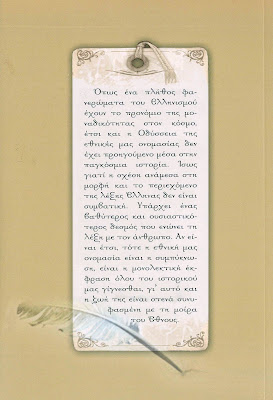 Όπως ένα πλήθος φα-
νερώματα του Ελληνισμού
έχουν το προνόμιο της μο-
ναδικότητας στον κόσμο,
έτσι και η Οδύσσεια της
εθνικής μας ονομασίας δεν
έχει προηγούμενο μέσα στην
παγκόσμια ιστορία. Ίσως
γιατί η σχέση ανάμεσα στη
μορφή και το περιεχόμενο
της λέξης Έλληνας δεν είναι
συμβατική. Υπάρχει ένας
βαθύτερος και ουσιαστικό-
τερος δεσμός που ενώνει τη
λέξη με τον άνθρωπο. Αν εί-
ναι έτσι, τότε η εθνική μας
ονομασία είναι η συμπύκνω-
ση, είναι η μονολεκτική έκ-
φραση όλου του ιστορικού
μας γίγνεσθαι, γι' αυτό και
η ζωή της είναι στενά συνυ-
φασμένη με τη μοίρα
του Έθνους.